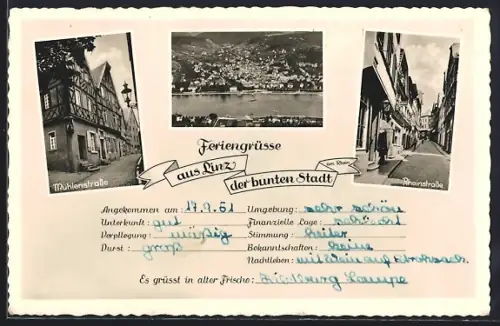 Mühlenstraße
Rheinstraße
Feriengrüsse
aus Linz
am Rhein
der bunten Stadt
Angekommen am: 17.9.61 Umgebung: sehr schön
Unterkunft: gut Finanzielle Lage: schlecht
Verpflegung: mäßig Stimmung: heiter
Durst: groß Bekanntschaften: keine
Nachtleben: mit Wein auf Strohsack
Es grüsst in alter Frische: Lampe